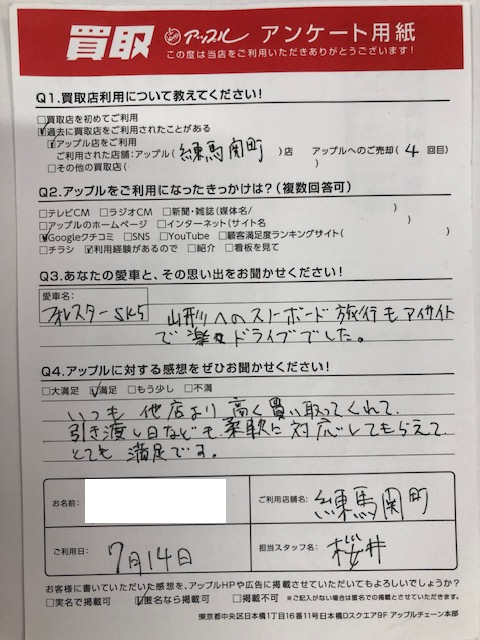 買取 アップル アンケート用紙
この度は当店をご利用いただきありがとうございます!
Q1.買取店利用について教えてください!
□買取店を初めてご利用
☑過去に買取店をご利用されたことがある
☑アップル店をご利用
ご利用された店舗:アップル(練馬関町)店 アップルへのご売却(4回目)
□その他の買取店( )
Q2.アップルをご利用になったきっかけは?(複数回答可)
□テレビCM □ラジオCM □新聞・雑誌(媒体名/ )
□アップルのホームページ □インターネット(サイト名 )
☑Googleクチコミ □SNS □YouTube □顧客満足度ランキングサイト( )
□チラシ ☑利用経験があるので □紹介 □看板を見て
Q3.あなたの愛車と、その思い出をお聞かせください!
愛車名:
フォレスターSK5
山形へのスノーボード旅行もアイサイト
で楽々ドライブでした。
Q4.アップルに対する感想をぜひお聞かせください!
□大満足 ☑満足 □もう少し □不満
いつも他店より高く買い取ってくれて、
引き渡し日なども、柔軟に対応してもらえて
とても満足です。
お名前:
ご利用店舗名: 練馬関町
ご利用日: 7月14日
担当スタッフ名: 桜井
お客様に書いていただいた感想を、アップルHPや広告に掲載させていただいてもよろしいでしょうか?
□実名で掲載可 ☑匿名なら掲載可 □掲載不可 ※ご記入がない場合は匿名での掲載とさせていただきます。
東京都中央区日本橋1丁目16番11号日本橋Dスクエア9F アップルチェーン本部